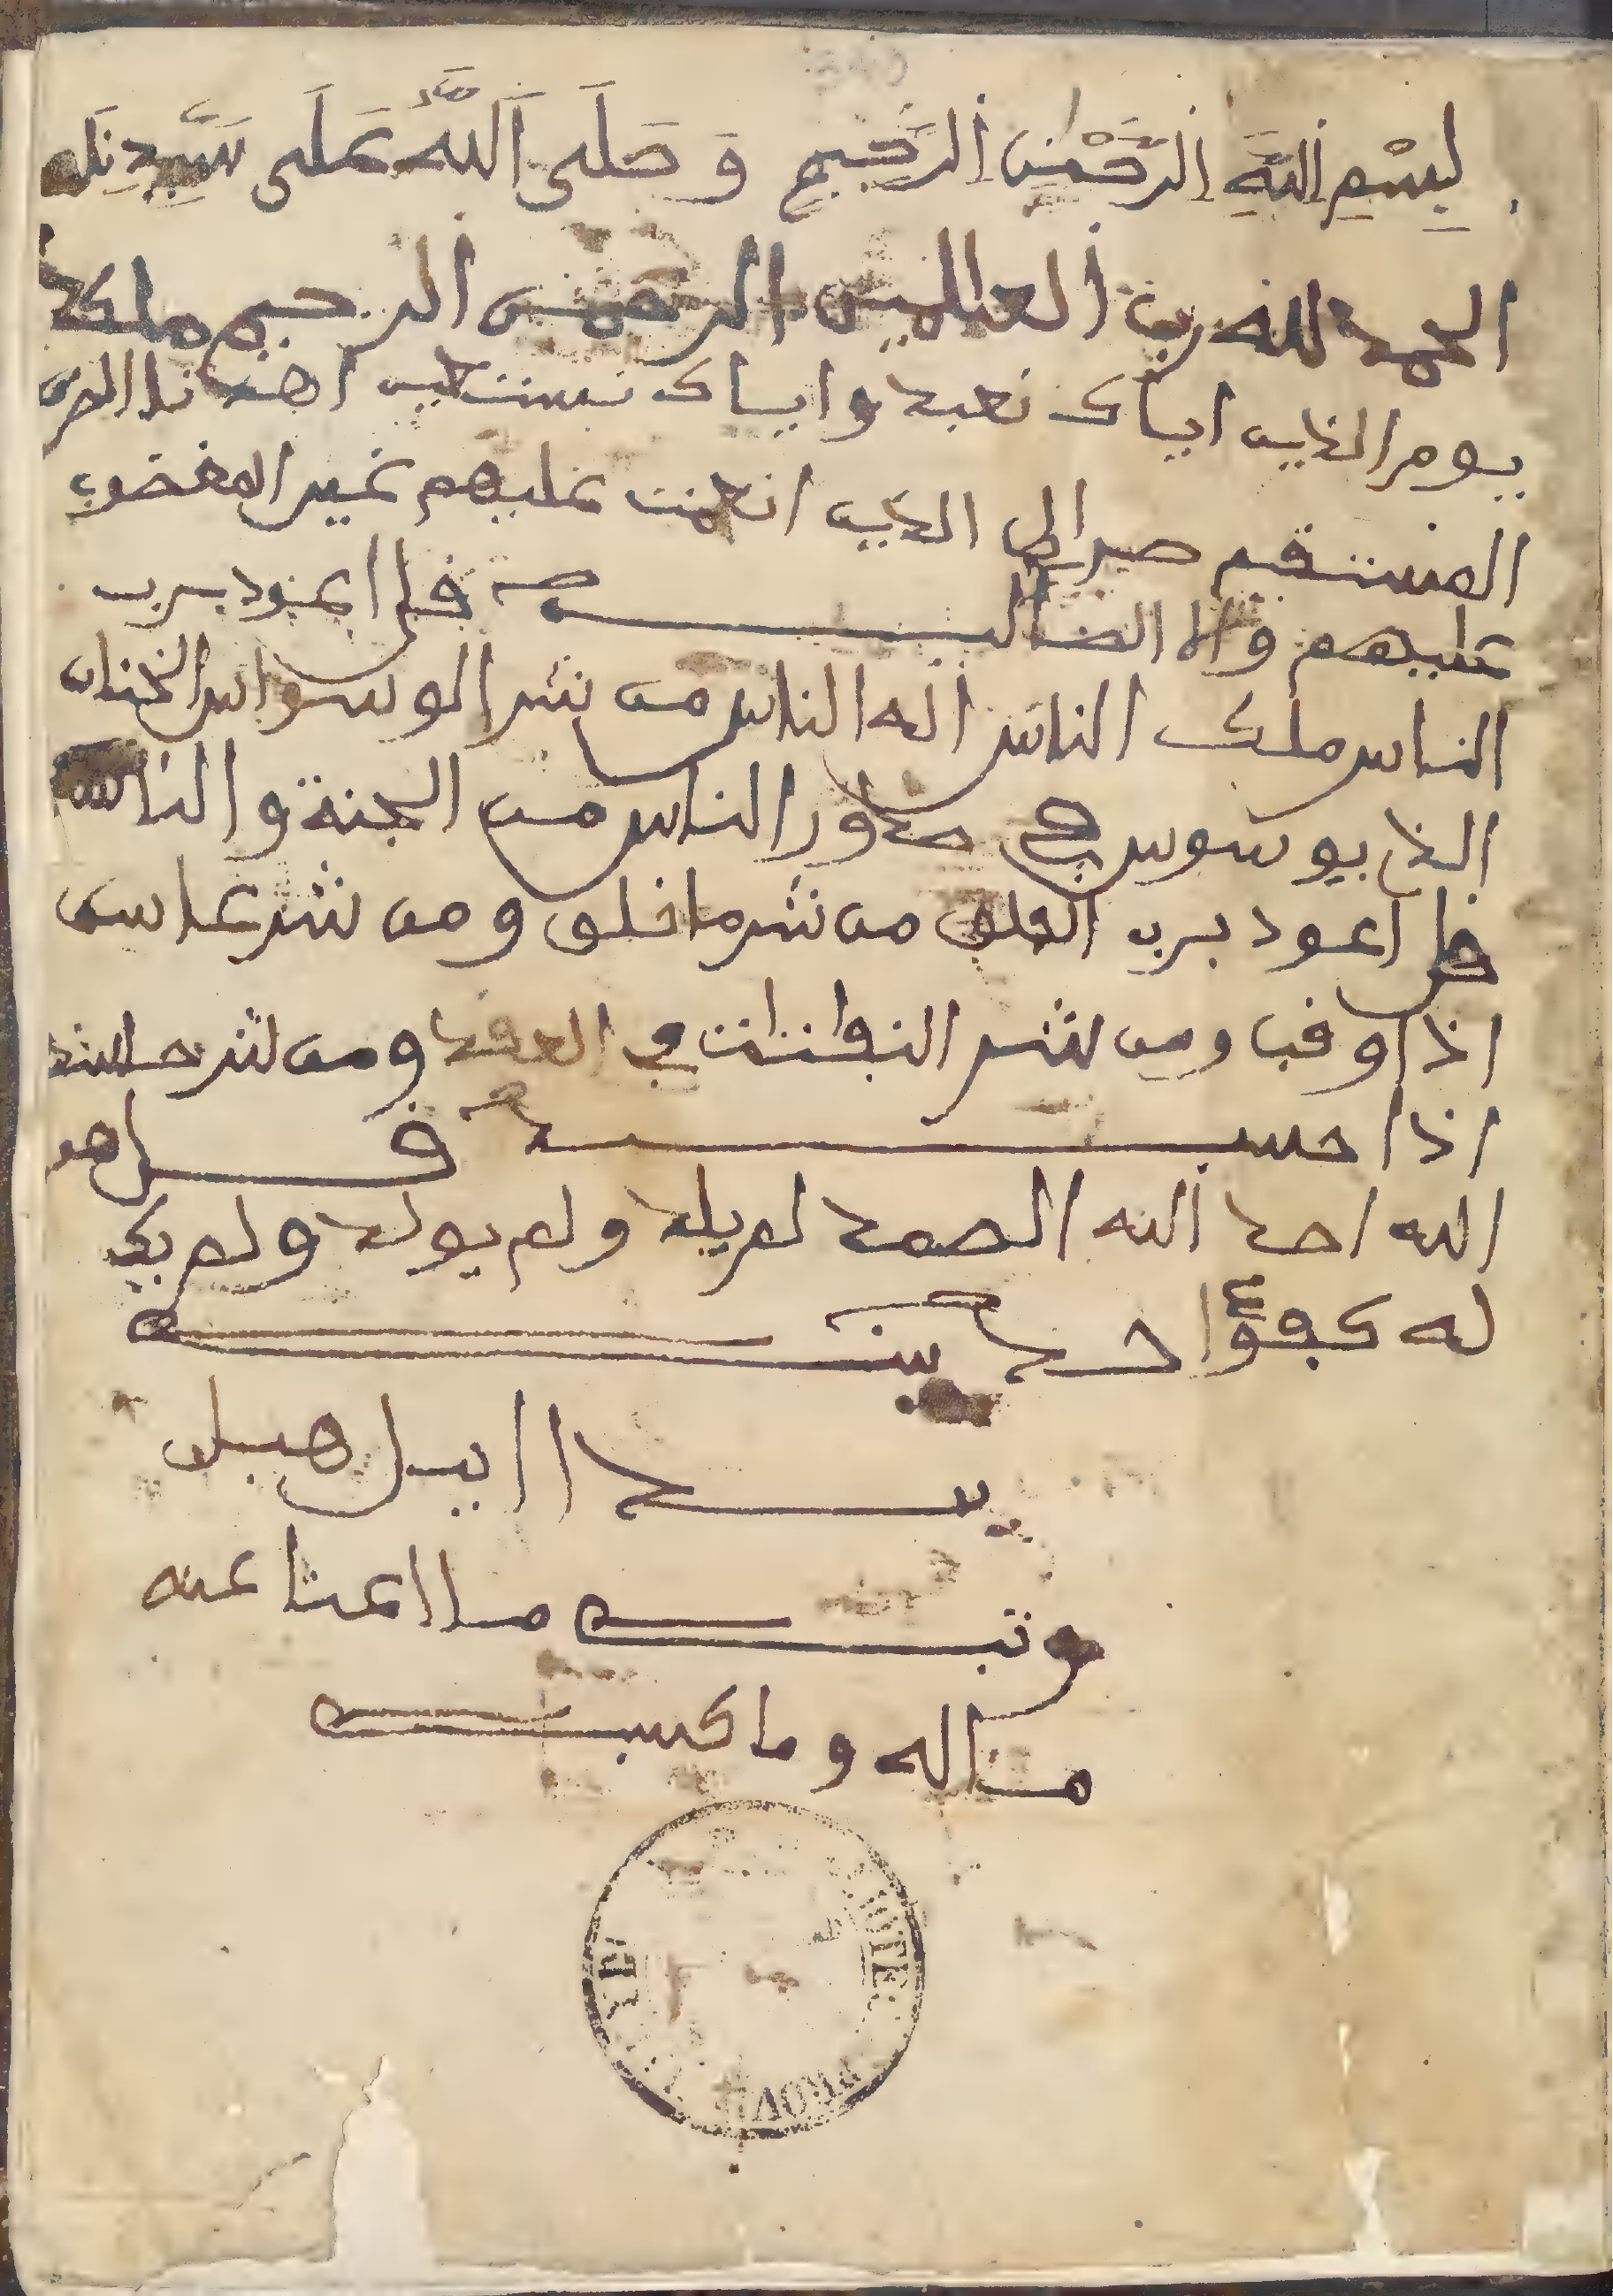 بِسْمِ اللَّهِ الرَّحْمَنِ الرَّحِيمِ وَصَلَى اللَّهُ عَلَى سَيِّدِنَا
الحمد لله رب العالمين الرحمن الرحيم ملك
يوم الدين اياك نعبد واياك نستعين اهدنا الصرط
المستقيم صراط الذين انعمت عليهم غير المغضوب
عليهم ولا الضالين قل اعوذ برب
الناس ملك الناس اله الناس من شر الوسواس الخناس
الذي يوسوس في صدور الناس من الجنة والناس
قل اعوذ برب الفلق من شر ما خلق ومن شر غاسق
اذا وقب ومن شر النفاثات في العقد ومن شر حاسد
اذا حسد قل هو
الله احد الله الصمد لم يلد ولم يولد ولم يكن
له كفؤا احد تبت
يدا ابي لهب
وتب ما اغنا عنه
ماله وما كسب
PROV